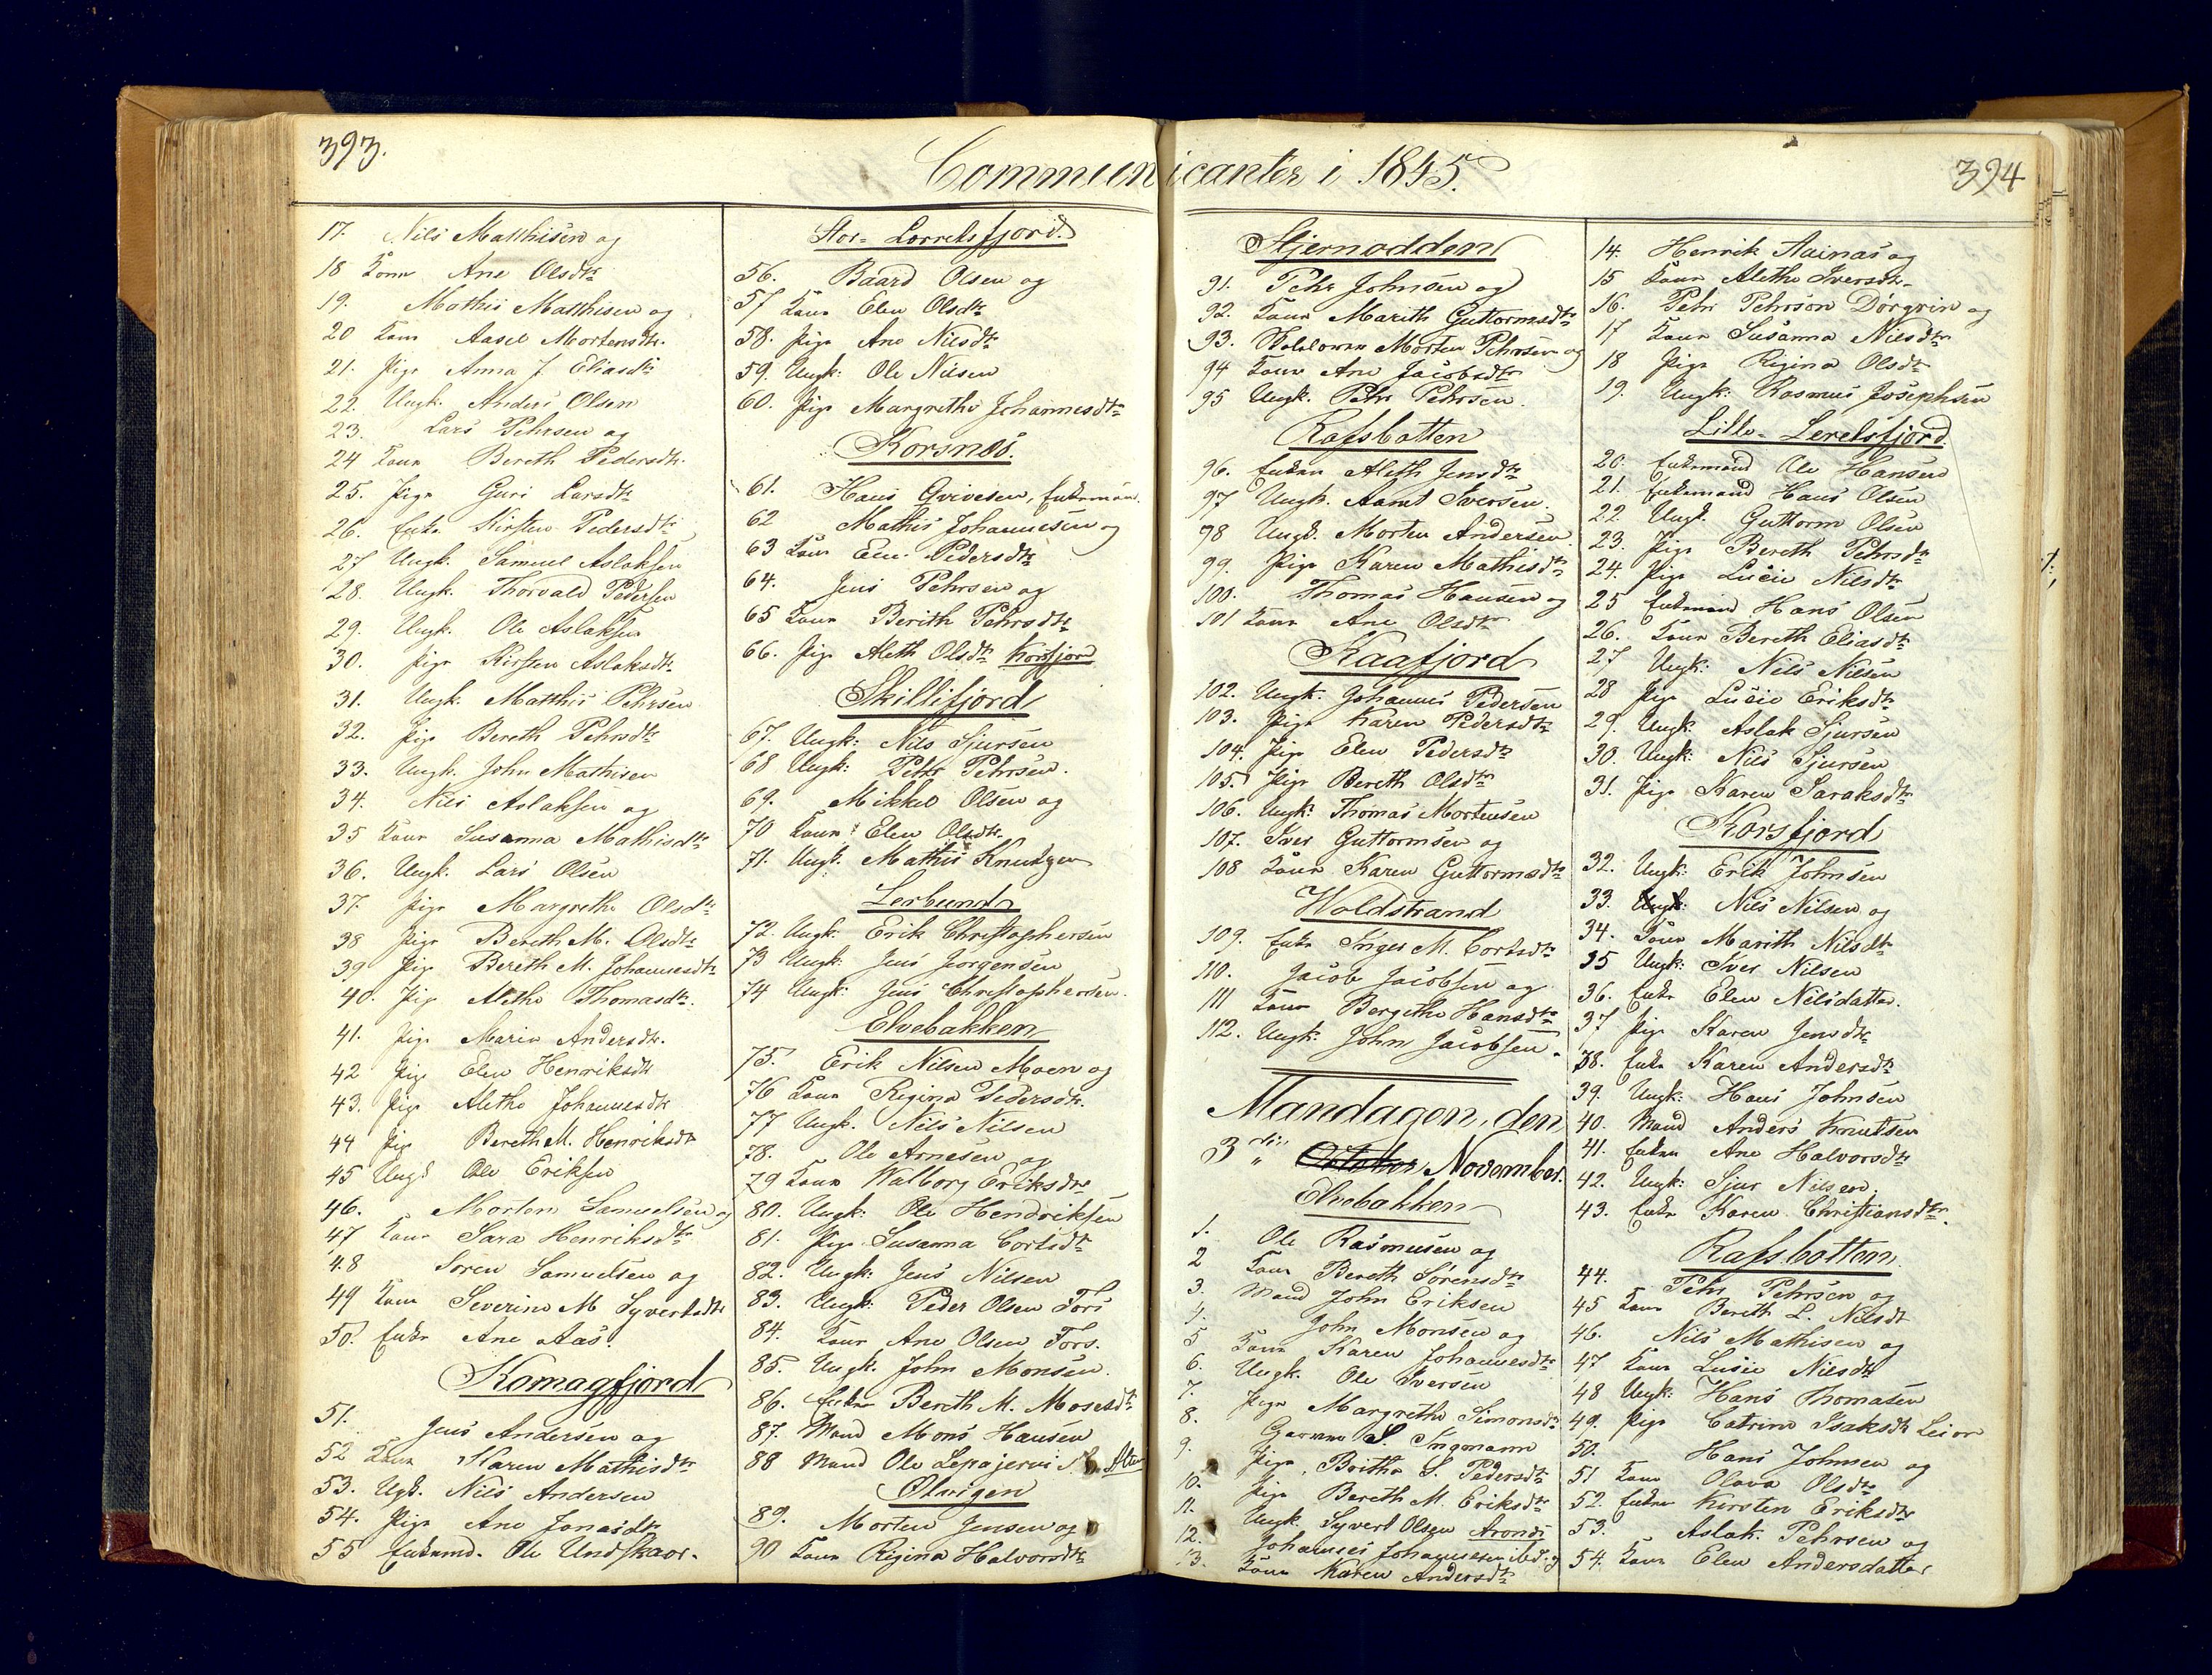 393.
Communicanter i 1845.
394
17. Nils Matthisen og
18 Kone Ane Olsdtr
19. Mathis Matthisen og
20 Kone Aasel Mortensdtr.
21. Pige Anna J Eliasdtr
22. Ungk. Anders Olsen
23. Lars Pehrsen og
24 Kone Bereth Pedersdtr.
25. Pige Guri Larsdtr
26. Enke Kirsten Pedersdtr
27 Ungk. Samuel Aslaksen
28. Ungk. Thorvald Pedersen
29. Ungk. Ole Aslaksen
30. Pige Kirsten Aslaksdtr.
31. Ungk. Matthis Pehrsen
32. Pige Bereth Pehrsdtr
33. Ungk. John Mathisen
34. Nils Aslaksen og
35 Kone Susanna Mathisdtr
36. Ungk. Lars Olsen
37. Pige Margrethe Olsdtr
38 Pige Bereth M. Olsdtr
39 Pige Bereth M. Johannesdtr
40. Pige Alethe Thomasdtr.
41. Pige Maria Andersdtr.
42 Pige Elen Henriksdtr
43. Pige Alethe Johannesdtr
44 Pige Bereth M. Henriksdtr
45 Ungk Ole Eriksen
46. Morten Samuelsen og
47 Kone Sara Henriksdtr
48 Sören Samuelsen og
49 Kone Severine M Syvertsdtr
50. Enke Ane Aas.
Komagfjord
51. Jens Andersen og
52 Kone Karen Mathisdtr
53. Ugk. Nils Andersen
54. Pige Ane Jonasdtr
55 Enkemd. Ole Undskaar.
Stor-Lerretsfjord.
56. Baard Olsen og
57 Kone Elen Olsdtr
58. Pige Ane Nilsdtr
59. Ungk: Ole Nilsen
60. Pige Margrethe Johannesdtr
Korsnes.
61. Hans Enkeman
62 Mathis Johannesen og
63 Kone Ellen Pedersdtr
64. Jens Pehrsen og
65 Kone Berith Pehrsdtr
66. Pige Aleth Olsdtr Korsfjord
Skillifjord
67. Ungk: Nils Sjursen
68 Ungk: Pehr Pehrsen.
69. Mikkel Olsen og
70 Kone Elen Olsdtr.
71. Ungk. Mathis Knudsen
Lerbund
72. Ungk. Erik Christophersen
73 Ungk: Jens Jörgensen
74 Ungk: Jens Christophersen.
Elvebakken
75. Erik Nilsen Moen og
76 Kone Regina Pedersdtr.
77 Ungk. Nils Nilsen
78. Ole Arnesen og
79 Kone Walborg Eriksdtr
80. Ungk: Ole Hendriksen
81. Pige Susanna Cortsdtr
82. Ungk: Jens Nilsen
83. Ungk: Peder Olsen Fors
84. Kone Ane Olsen Fors.
85. Ungk. John Monsen.
86. Enke Bereth M. Mosesdtr
87. Mand Mons Hansen
88 Mand Ole Lepajervi
Ølvigen
89. Morten Jensen og
90 Kone Regina Halvorsdtr
Stjernodden
91. Pehr Johnsen og
92. Kone Marith Guttormsdtr
93. Morten Pehrsen og
94 Kone Ane Jacobsdtr
95 Ungk. Pehr Pehrsen.
Rafsbotten
96. Enken Aleth Jensdtr
97 Ungk. Aamt Iversen.
98 Ungk. Morten Andersen.
99. Pige Karen Mathisdtr
100. Thomas Hansen og
101 Kone Ane Olsdtr
Kaafjord
102. Ungk: Johannes Pedersen
103. Pige Karen Pedersdtr
104. Pige Elen Pedersdtr
105. Pige Bereth Olsdtr
106. Ungk: Thomas Mortensen
107. Iver Guttormsen og
108 Kone Karen Guttormsdtr
Woldstrand
109. Enke Inger M. Cortsdtr
110. Jacob Jacobsen og
111 Kone Bergithe Hansdtr
112. Ungk: John Jacobsen.
Mandagen, den
3die October November.
Elvebakken
1. Ole Rasmusen og
2 Kone Bereth Sørensdtr
3. Mand John Eriksen
4. John Monsen og
5 Kone Karen Johannesdtr
6. Ungk. Ole Iversen
7. Pige Margrethe Simonsdtr
8. S. Ingmann
9. Pige Britha S. Pedersdtr
10. Pige Bereth M. Eriksdtr
11. Ungk. Syvert Olsen
12. Johannes Johannesen
13. Kone Karen Andersdtr
14. Henrik Aainas og
15 Kone Alethe Iversdtr
16. Pehr Pehrson og
17 Kone Susanna Nilsdtr
18 Pige Regina Olsdtr
19. Ungk: Rasmus Josephsen
Lille-Leretsfjord.
20. Enkemand Ole Hansen
21. Enkemand Hans Olsen
22 Ungk. Guttorm Olsen
23. Pige Bereth Pehrsdtr
24. Pige Lucie Nilsdtr
25 Enkemand Hans Olsen
26. Kone Bereth Eliasdtr
27 Ungk: Nils Nilsen
28 Pige Lucie Eriksdtr
29. Ungk: Aslak Sjursen
30. Ungk: Nils Sjursen
31. Pige Karen Saraksdtr
Korsfjord
32. Ungk: Erik Johnsen
33. Ungk: Nils Nilsen og
34. Kone Marith Nilsdtr
35 Ungk: Iver Nilsen
36. Enke Elen Nilsdatter.
37 Pige Karen Jensdtr
38. Enke Karen Andersdtr
39. Ungk: Hans Johnsen
40. Mand Anders Knutsen
41. Enken Ane Halvorsdtr
42. Ungk: Sjur Nilsen.
43. Enke Karen Christiansdtr.
Rafsbotten
44. Pehr Pehrsen og
45 Kone Bereth L. Nilsdtr
46. Nils Mathisen og
47 Kone Lucie Nilsdtr
48 Ungk: Hans Thomasen
49. Pige Catrine Isaksdtr
50. Hans Johnsen og
51 Kone Olava Olsdtr
52. Enken Kirsten Eriksdtr
53. Aslak Pehrsen og
54. Kone Elen Andersdatter